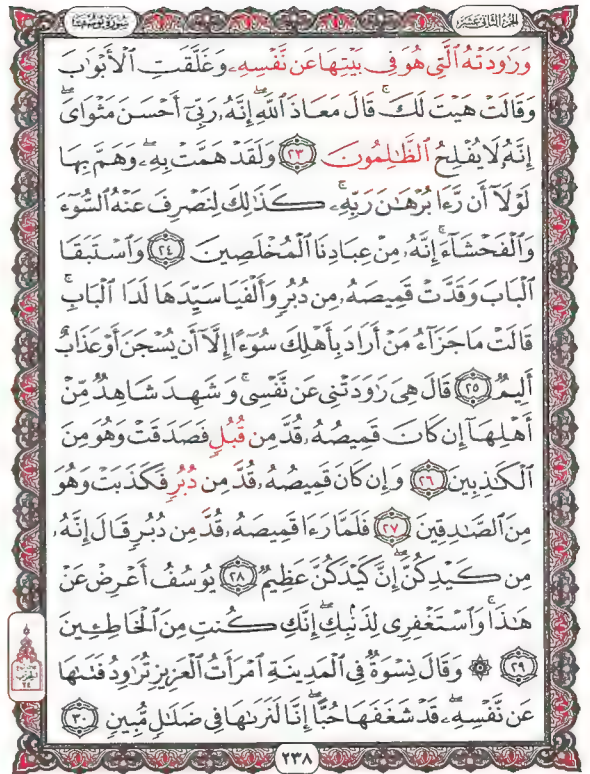 سورة يوسف
الجزء الثاني عشر
وَرَٰوَدَتْهُ ٱلَّتِى هُوَ فِى بَيْتِهَا عَن نَّفْسِهِۦ وَغَلَّقَتِ ٱلْأَبْوَٰبَ
وَقَالَتْ هَيْتَ لَكَ ۚ قَالَ مَعَاذَ ٱللَّهِ ۖ إِنَّهُۥ رَبِّىٓ أَحْسَنَ مَثْوَاىَ ۖ
إِنَّهُۥ لَا يُفْلِحُ ٱلظَّٰلِمُونَ ٢٣ وَلَقَدْ هَمَّتْ بِهِۦ ۖ وَهَمَّ بِهَا
لَوْلَآ أَن رَّءَا بُرْهَٰنَ رَبِّهِۦ ۚ كَذَٰلِكَ لِنَصْرِفَ عَنْهُ ٱلسُّوٓءَ
وَٱلْفَحْشَآءَ ۚ إِنَّهُۥ مِنْ عِبَادِنَا ٱلْمُخْلَصِينَ ٢٤ وَٱسْتَبَقَا
ٱلْبَابَ وَقَدَّتْ قَمِيصَهُۥ مِن دُبُرٍ وَأَلْفَيَا سَيِّدَهَا لَدَا ٱلْبَابِ ۚ
قَالَتْ مَا جَزَآءُ مَنْ أَرَادَ بِأَهْلِكَ سُوٓءًا إِلَّآ أَن يُسْجَنَ أَوْ عَذَابٌ
أَلِيمٌ ٢٥ قَالَ هِىَ رَٰوَدَتْنِى عَن نَّفْسِى ۚ وَشَهِدَ شَاهِدٌ مِّنْ
أَهْلِهَآ إِن كَانَ قَمِيصُهُۥ قُدَّ مِن قُبُلٍ فَصَدَقَتْ وَهُوَ مِنَ
ٱلْكَٰذِبِينَ ٢٦ وَإِن كَانَ قَمِيصُهُۥ قُدَّ مِن دُبُرٍ فَكَذَبَتْ وَهُوَ
مِنَ ٱلصَّٰدِقِينَ ٢٧ فَلَمَّا رَءَا قَمِيصَهُۥ قُدَّ مِن دُبُرٍ قَالَ إِنَّهُۥ
مِن كَيْدِكُنَّ ۖ إِنَّ كَيْدَكُنَّ عَظِيمٌ ٢٨ يُوسُفُ أَعْرِضْ عَنْ
هَٰذَا ۚ وَٱسْتَغْفِرِى لِذَنۢبِكِ ۖ إِنَّكِ كُنتِ مِنَ ٱلْخَاطِـِٔينَ
٢٩ ۞ وَقَالَ نِسْوَةٌ فِى ٱلْمَدِينَةِ ٱمْرَأَتُ ٱلْعَزِيزِ تُرَٰوِدُ فَتَىٰهَا
عَن نَّفْسِهِۦ ۖ قَدْ شَغَفَهَا حُبًّا ۖ إِنَّا لَنَرَىٰهَا فِى ضَلَٰلٍ مُّبِينٍ ٣٠
الحزب
٢٤
٢٣٨